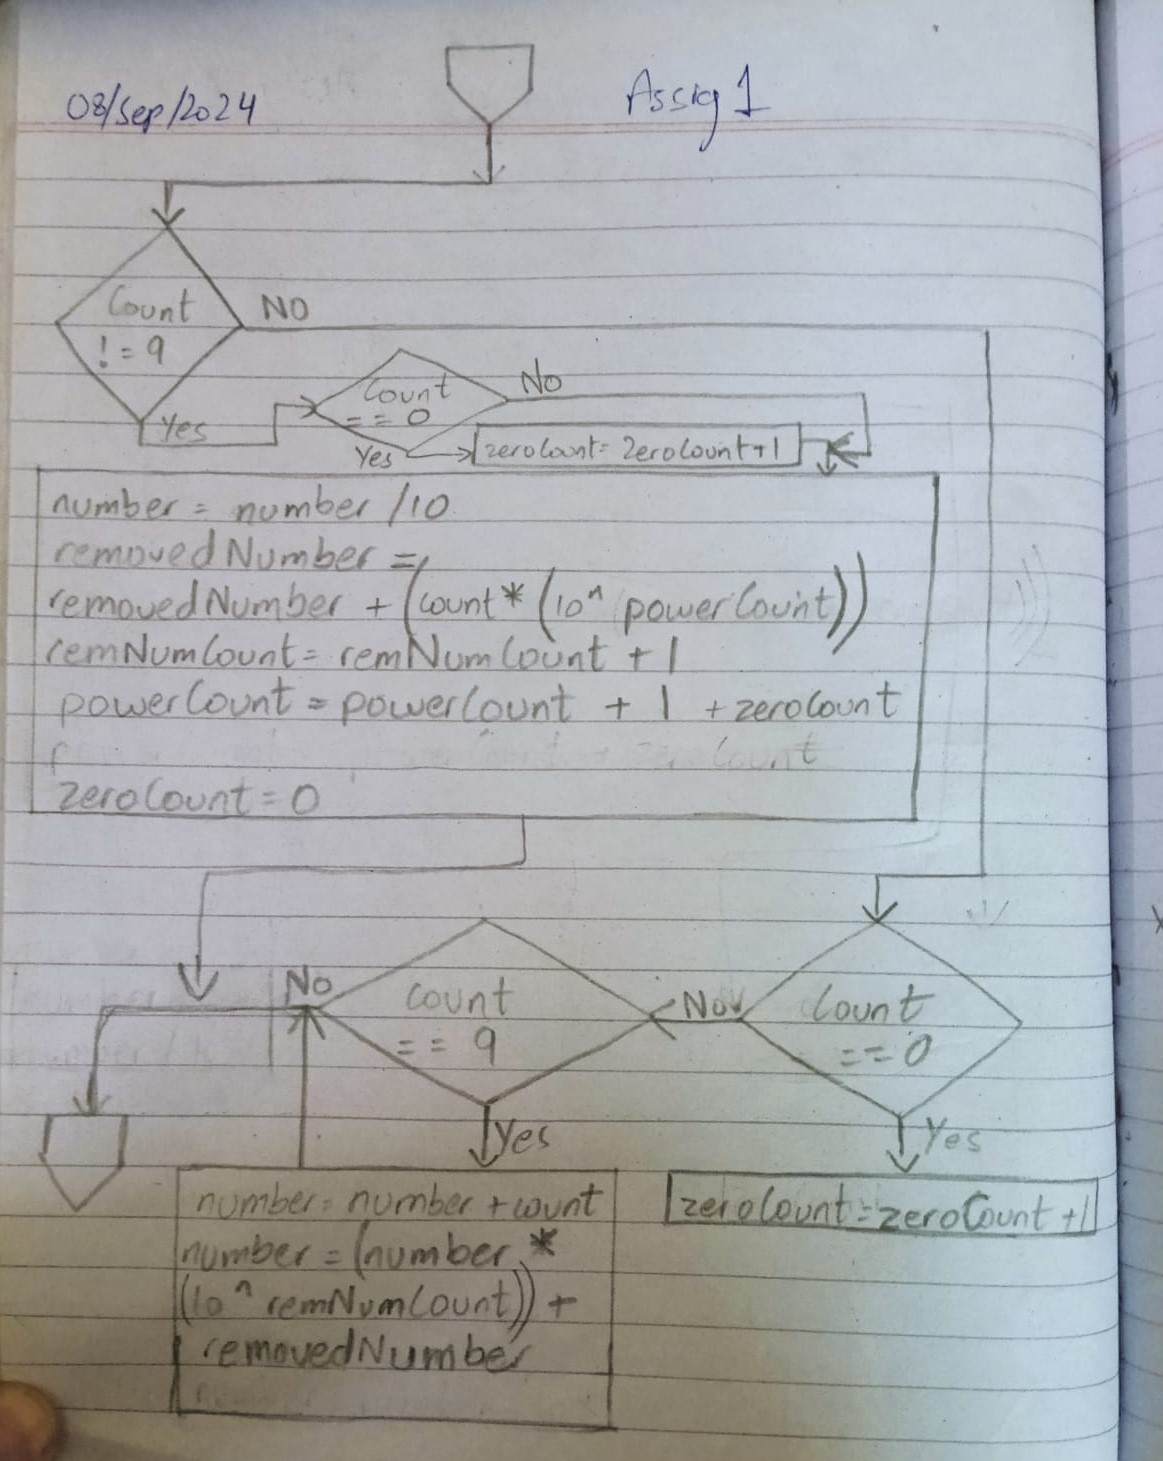 08/Sep/2024
Assig 1
Count
!= 9
NO
Yes
Count
== 0
No
Yes
zeroCount= zeroCount+1
number = number /10
removedNumber =
removedNumber + (count* (10^ powerCount))
remNumCount= remNumCount + 1
powerCount = powerCount + 1 + zeroCount
zeroCount
zeroCount = 0
No
count
== 9
No
Count
== 0
Yes
Yes
number= number + count
number = (number *
(10^ remNumCount)) +
removedNumber
zeroCount=zeroCount +1